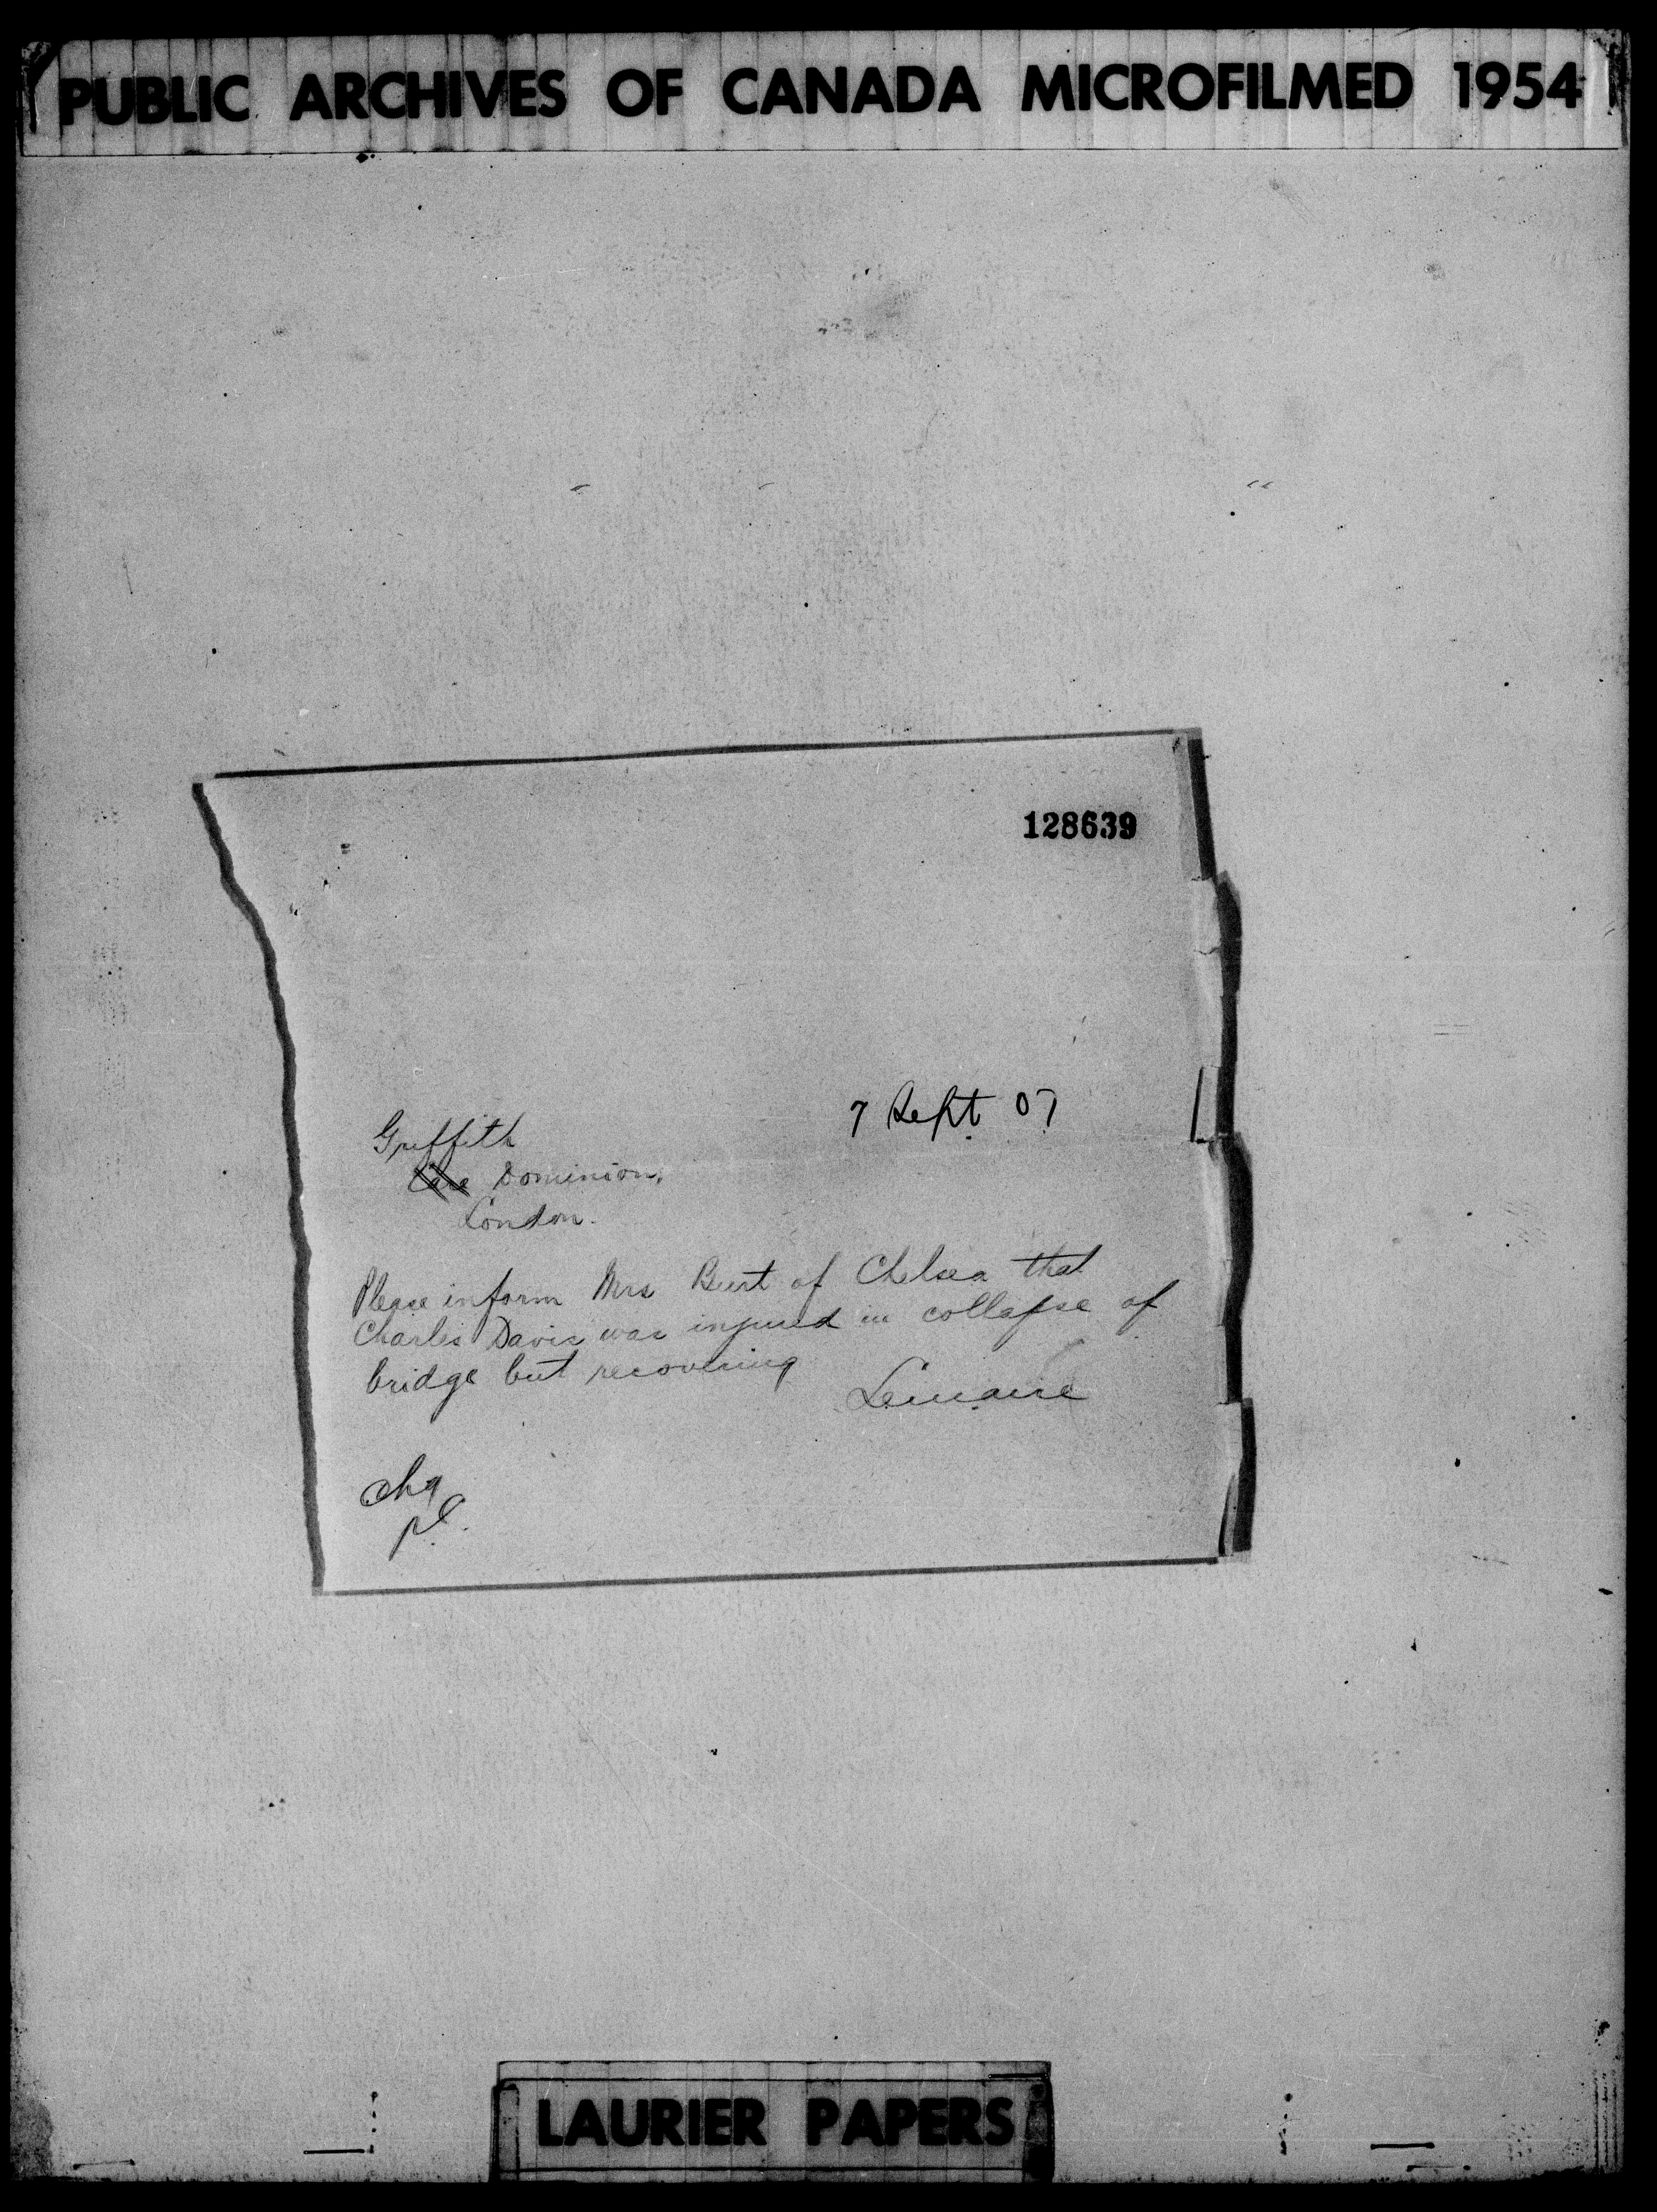 PUBLIC ARCHIVES OF CANADA MICROFILMED 1954
128639
7 Sept 07
Griffith
Care Dominion,
London.
Please inform Mrs Burt of Chelsea that
Charles Davis was injured in collapse of
bridge but recovering
Lemaire
chg
LAURIER PAPERS